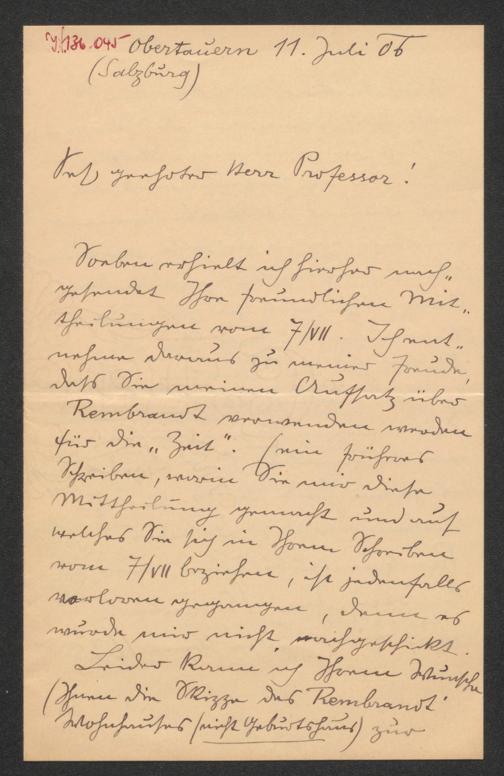 J.N. 136.045 Obertauern 11. Juli 06
(Salzburg)
Sehr geehrter Herr Professor!
Soeben erhielt ich hierher nach„
gesendet Ihre freundlichen Mit„
theilungen vom 7/VII. Ich ent„
nehme daraus zu meiner Freude,
daß Sie meinen Aufsatz über
Rembrandt verwenden werden
für die „Zeit". (ein früheres
Schreiben, worin Sie mir diese
Mittheilung gemacht und auf
welches Sie sich in Ihrem Schreiben
vom 7/VII beziehen, ist jedenfalls
verloren gegangen, denn es
wurde mir nicht nachgeschickt.
Leider kann ich Ihrem Wunsche
(Ihnen die Skizze des Rembrandt
Wohnhauses (nicht Geburtshaus) zur